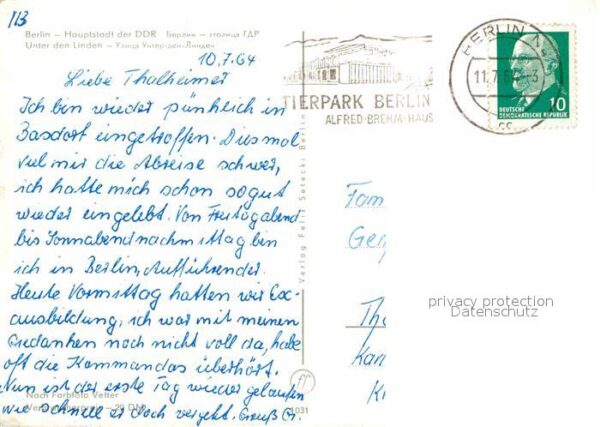 113
Berlin – Hauptstadt der DDR Берлин – столица ГДР
Unter den Linden – Улица Унтер-ден-Линден
10.7.64
Liebe Thalheimer
Ich bin wieder pünklich in
Basdorf eingetroffen. Diesmal
viel mir die Abreise schwer,
ich hatte mich schon sogut
wieder eingelebt. Von Freitagabend
bis Sonnabendnachmittag bin
ich in Berlin, Aufführender.
Heute Vormittag hatten wir Ex-
ausbildung, ich war mit meinen
Gedanken noch nicht voll da, habe
oft die Kommandos überhört.
Nun ist der erste Tag wieder gelaufen
wie schnell er doch vergeht. Gruß G.
Nach Farbfoto Vetter
1031
Verlag Felix Setecki Berlin
TIERPARK BERLIN
ALFRED-BREHM-HAUS
BERLIN
11.7.64
DEUTSCHE
DEMOKRATISCHE REPUBLIK
10
Fam
Th
privacy protection
Datenschutz